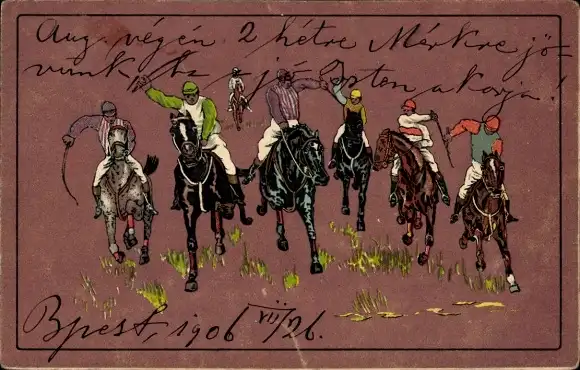 Aug. végén 2 hétre Mérkre jö-
vünk ha a jó Isten akarja!
Bpest, 1906 VII/26.